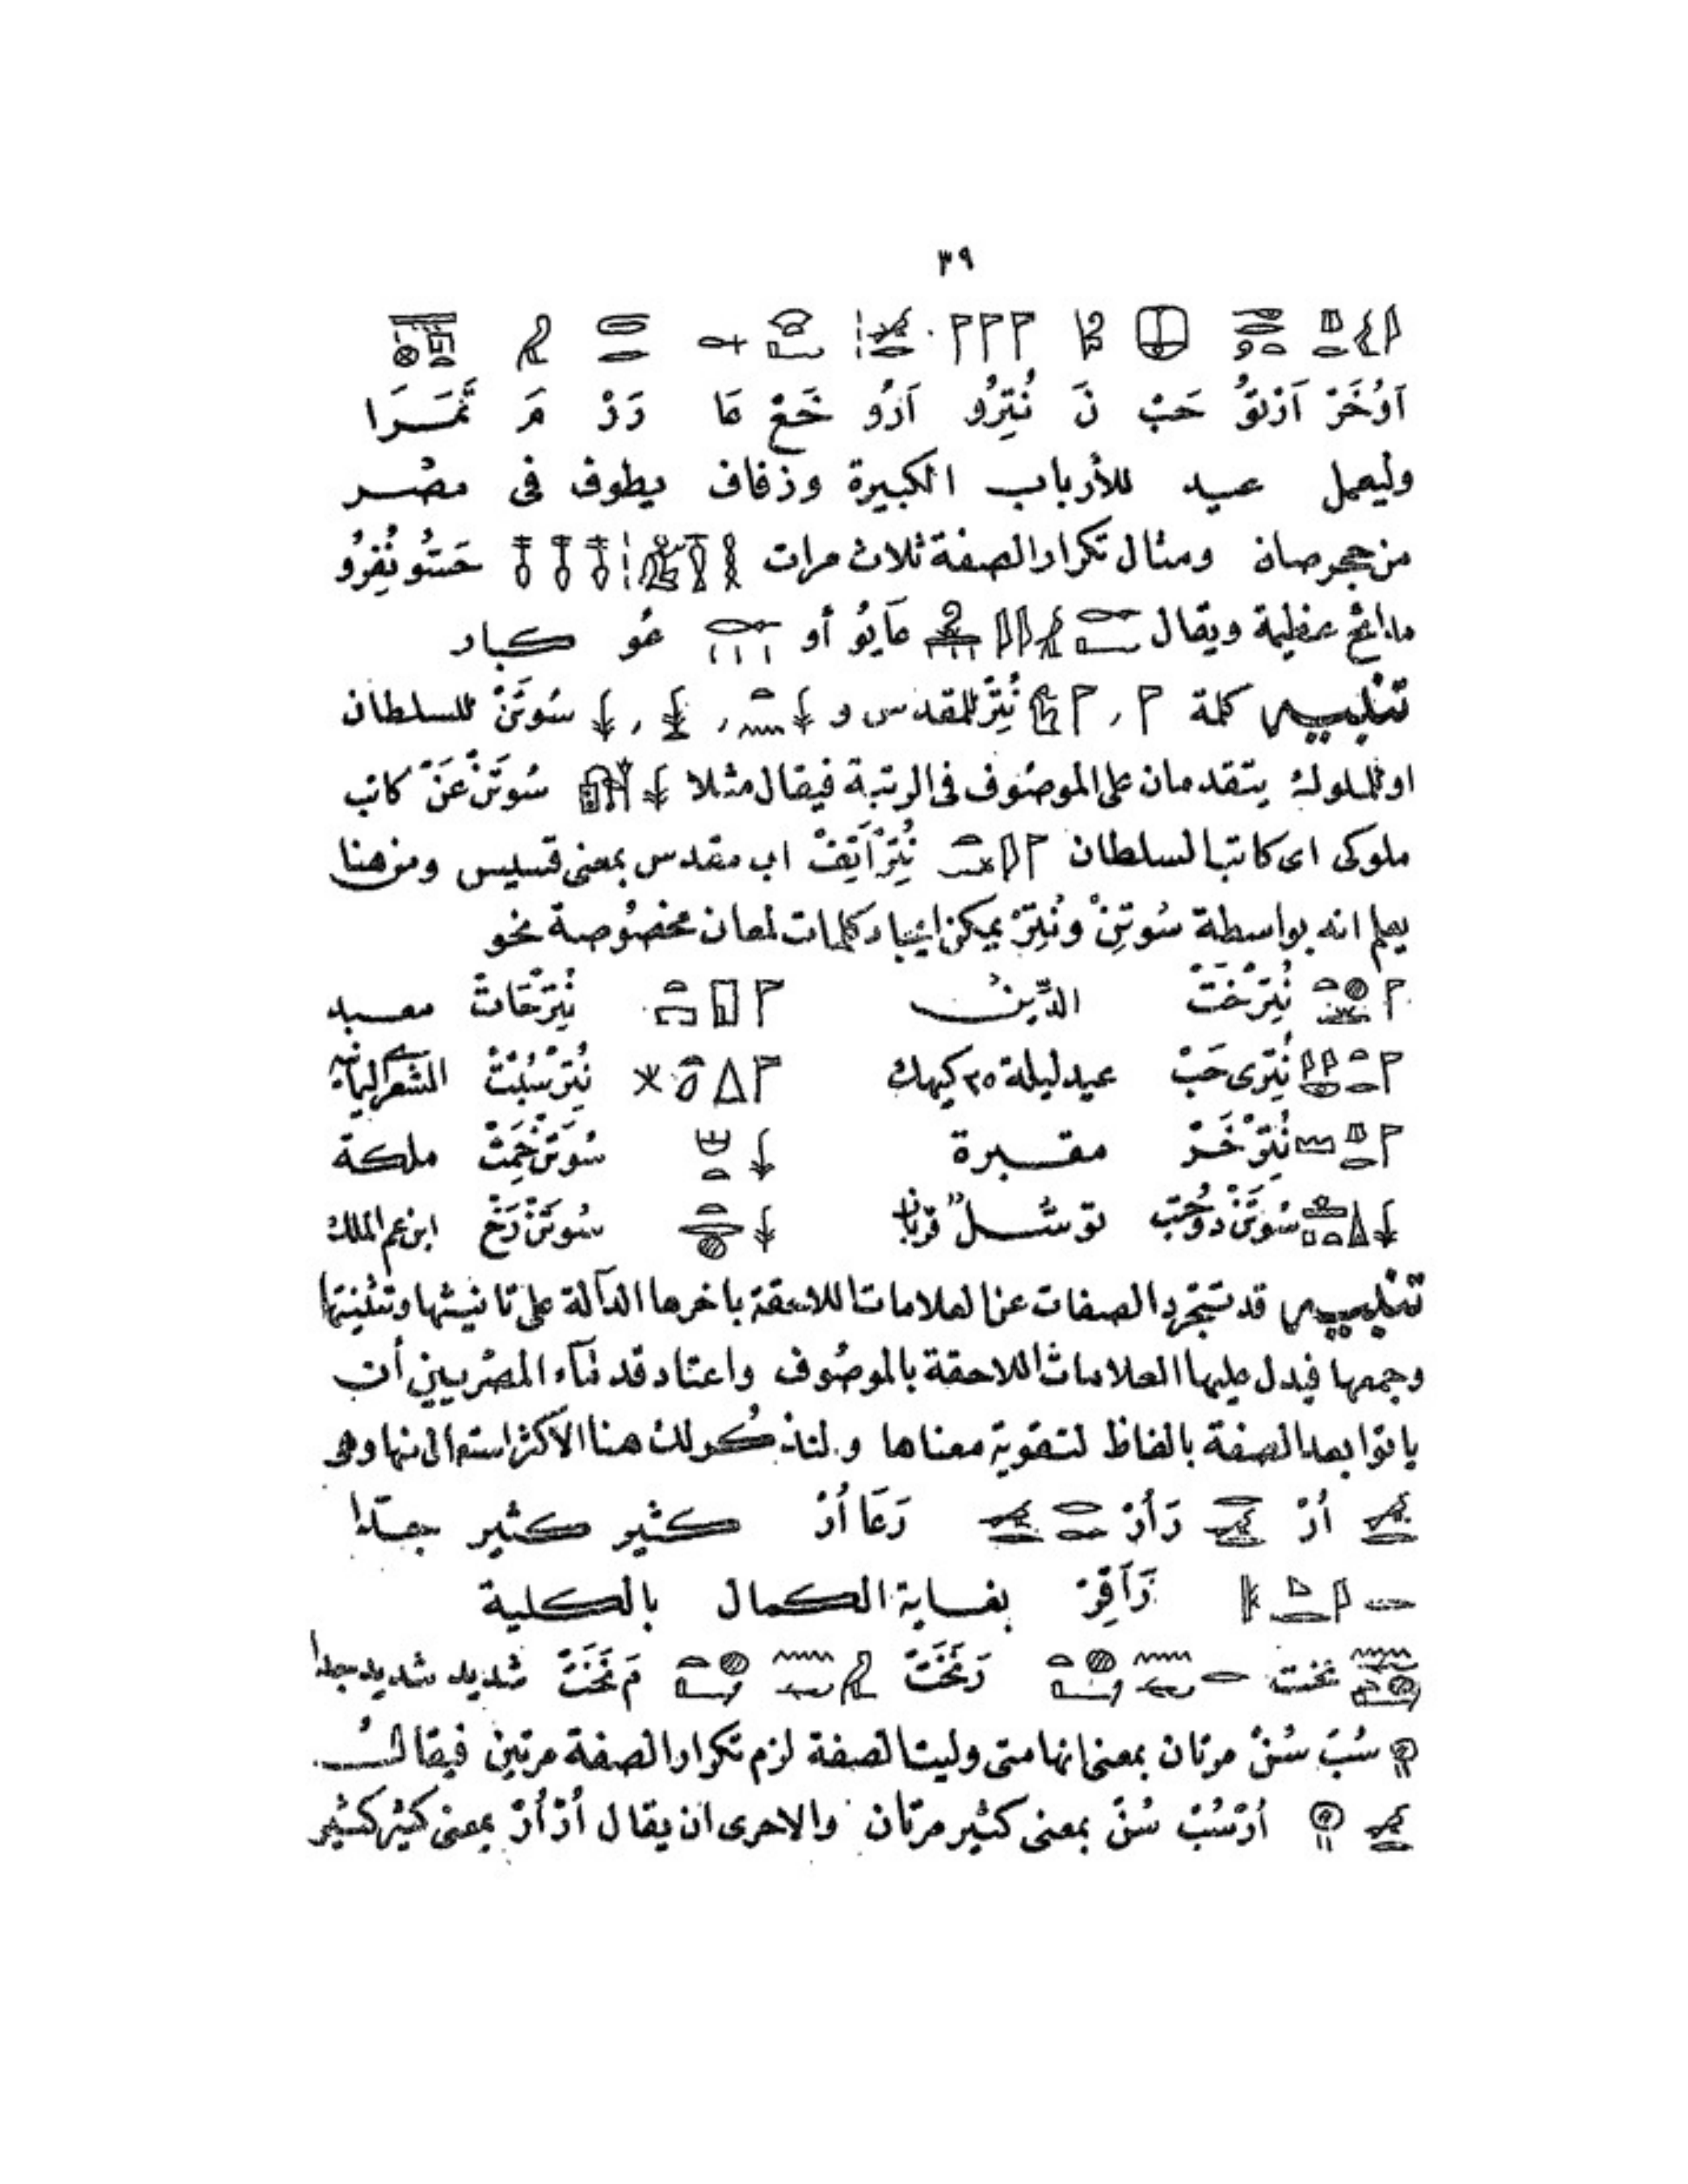 ٣٩
حَبْ نَ نُتِرُو خَعْ مَ
وليعمل عيد للأرباب الكبيرة وزفاف يطوف فى مصر
من حجر صان ومثال تكرار الصفة ثلاث مرات نُفِرُو
مدائح عظيمة ويقال عَايُو أو عُو كبار
تنبيه كلمة نُتِرْ للمقدس و سُوتَنْ للسلطان
او للملوك يتقدمان على الموصوف فى الرتبة فيقال مثلا سُوتَنْ عَنْ كاتب
ملوكى اى كاتب السلطان نُتِرْ اَتِفْ اب مقدس بمعنى قسيس ومن هنا
يعلم انه بواسطة سُوتِنْ ونُتِرْ يمكن ايجاد كلمات لمعان مخصوصة نحو
نُتِرْخَتْ الدّين نُتِرْحَاتْ معبد
نُتِرى حَبْ عيد ليلة ٢٥ كيهك نُتِرْسُبْتْ
نُتِرْخَرْ مقبرة سُوتَنْ حِمْتْ ملكة
سُوتَنْ دُوحُتِبْ توسّل قربان سُوتَنْ رَخْ ابن عم الملك
تنبيه قد تتجرد الصفات عن العلامات اللاحقة باخرها الدآلة على تانيثها وتثنيتها
وجمعها فيدل عليها العلامات اللاحقة بالموصوف واعتاد قدمآء المصريين أن
ياتوا بعد الصفة بالفاظ لتقوية معناها ولنذكر لك هنا الاكثر استعمالا منها وهو
أُرْ رَأُرْ رَعَا أُرْ كثير كثير جدّا
رَآقِرْ بغاية الكمال بالكلية
نخت رَنَخْتَ مَ نَخْتَ شديد شديد جدا
سُبْ سُنْ مرتان بمعنى انها متى وليت الصفة لزم تكرار الصفة مرتين فيقال
أُرْسُبْ سُنْ بمعنى كثير مرتان والاحرى ان يقال أُرْأُرْ بمعنى كثير كثير